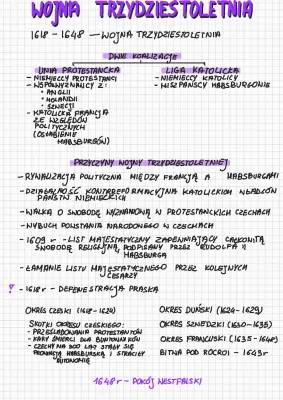 WOJNA TRZYDZIESTOLETNIA
1618 - 1648 — WOJNA TRZYDZIESTOLETNIA
DWIE KOALICJE
UNIA PROTESTANCKA
- NIEMIECCY PROTESTANCI
- WSPÓŁWYZNAWCY Z:
* ANGLII
* HOLANDII
* SZWECJI
- KATOLICKA FRANCJA
ZE WZGLĘDÓW
POLITYCZNYCH
(OSŁABIENIE
HABSBURGÓW)
LIGA KATOLICKA
- NIEMIECCY KATOLICY
- HISZPAŃSCY HABSBURGOWIE
PRZYCZYNY WOJNY TRZYDZIESTOLETNIEJ
- RYWALIZACJA POLITYCZNA MIĘDZY FRANCJĄ A HABSBURGAMI
- DZIAŁALNOŚĆ KONTRREFORMACYJNA KATOLICKICH WŁADCÓW
PAŃSTW NIEMIECKICH
- WALKA O SWOBODĘ WYZNANIOWĄ W PROTESTANCKICH CZECHACH
- WYBUCH POWSTANIA NARODOWEGO W CZECHACH
- 1609 r - LIST MAJESTATYCZNY ZAPEWNIAJĄCY CAŁKOWITĄ
SWOBODĘ RELIGIJNĄ, PODPISANY PRZEZ RUDOLFA II
HABSBURGA
- ŁAMANIE LISTU MAJESTATYCZNEGO PRZEZ KOLEJNYCH
CESARZY
! - 1618 r - DEFENESTRACJA PRASKA
OKRES CZESKI (1618 - 1624)
SKUTKI OKRESU CZESKIEGO:
- PRZEŚLADOWANIA PROTESTANTÓW
- KARY ŚMIERCI DLA BUNTOWNIKÓW
- CZECHY NA 300 LAT STAŁY SIĘ
PROWINCJĄ HABSBURSKĄ I STRACIŁY
AUTONOMIĘ
OKRES DUŃSKI (1624 - 1629)
OKRES SZWEDZKI (1630 - 1635)
OKRES FRANCUSKI (1635 - 1648)
BITWA POD ROCROI - 1643 r
1648 r - POKÓJ WESTFALSKI